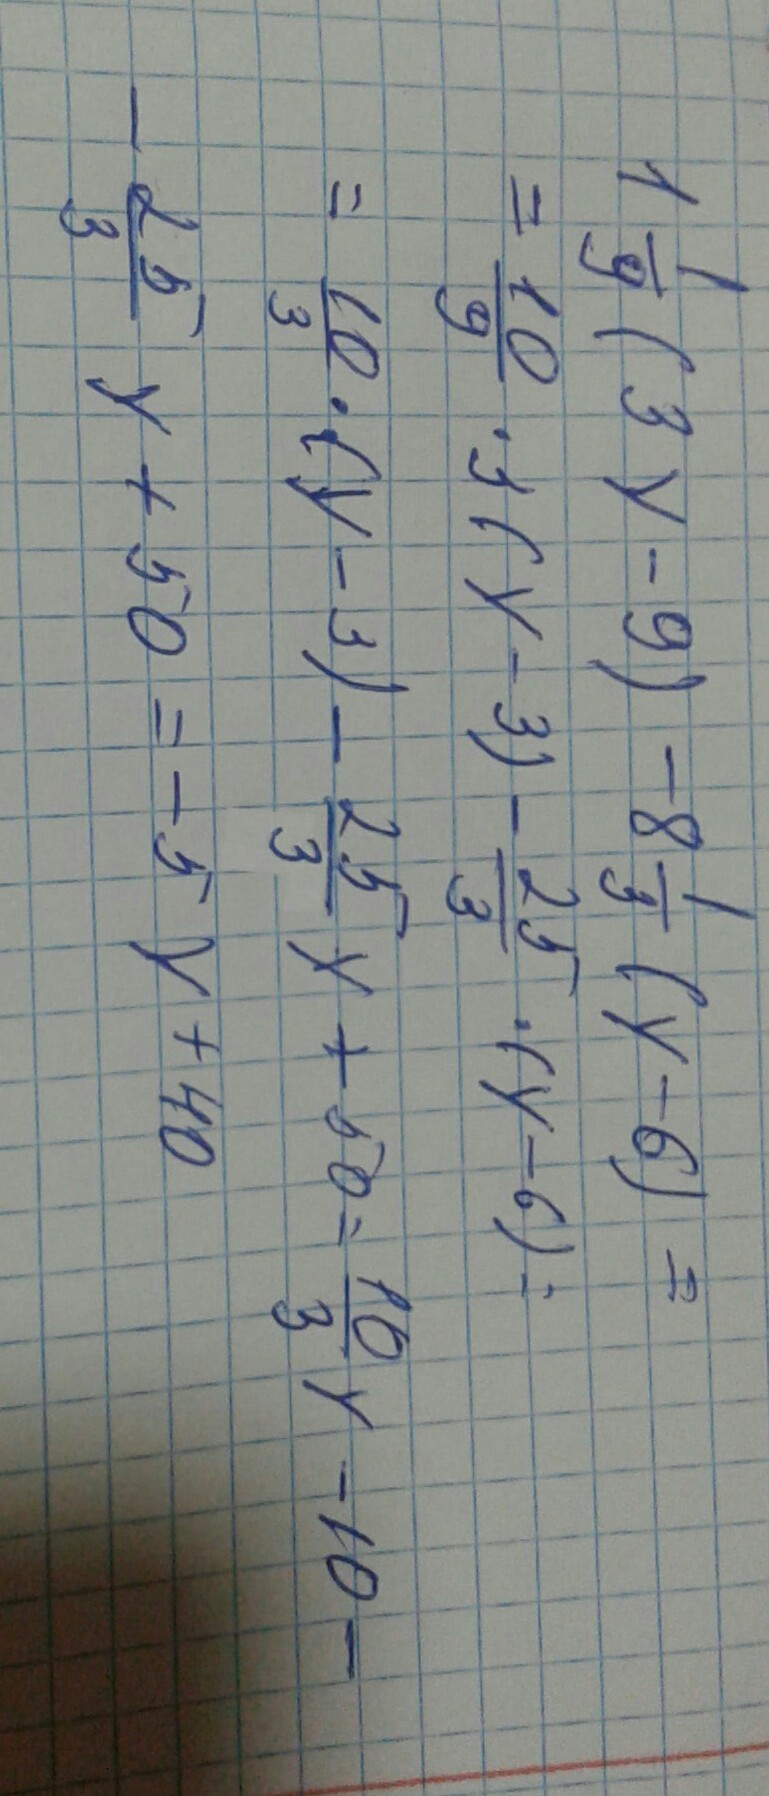 1 1/9 (3y - 9) - 8 1/3 (y - 6) =
= 10/9 · 3 (y - 3) - 25/3 · (y - 6) =
= 10/3 · (y - 3) - 25/3 y + 50 = 10/3 y - 10 -
- 25/3 y + 50 = - 5y + 40